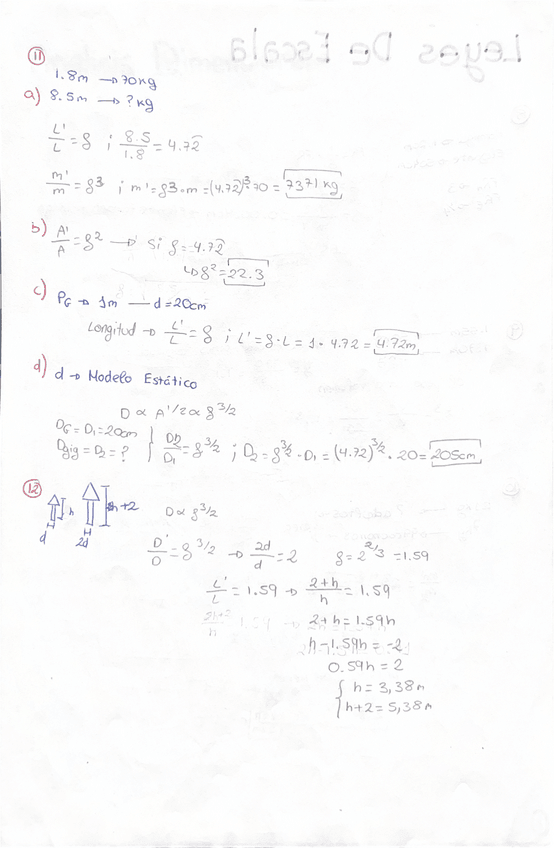 Leyes De Escala
11
1.8m → 70kg
a) 8.5m → ? kg
L'/L = ρ ; 8.5/1.8 = 4.72
m'/m = ρ³ ; m' = ρ³·m = (4.72)³·70 = 7371 kg
b) A'/A = ρ² → Si ρ = 4.72
↳ ρ² = 22.3
c) PG → 1m — d = 20cm
Longitud → L'/L = ρ ; L' = ρ·L = 1·4.72 = 4.72m
d) d → Modelo Estático
D ∝ A^1/2 ∝ ρ^3/2
DG = D1 = 20cm
Dgig = D2 = ?
D2/D1 = ρ^3/2 ; D2 = ρ^3/2 · D1 = (4.72)^3/2 · 20 = 205cm
12
h h+2 D ∝ ρ^3/2
d 2d
D'/D = ρ^3/2 → 2d/d = 2 ρ = 2^2/3 = 1.59
L'/L = 1.59 → 2+h/h = 1.59
2+h = 1.59h
h-1.59h = -2
0.59h = 2
h = 3,38m
h+2 = 5,38m